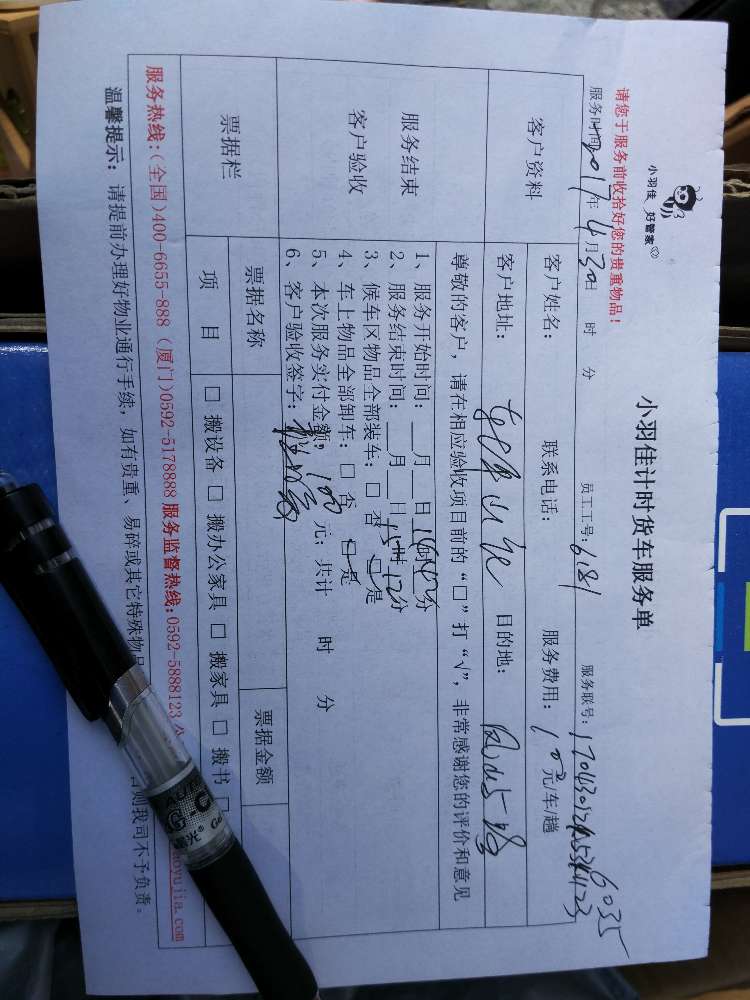 小羽佳 好管家
小羽佳计时货车服务单
请您于服务前收拾好您的贵重物品！
服务时间 2017年 4月 30日 时 分 员工工号：6181 服务联号：
6035
客户资料
客户姓名： 联系电话： 服务费用：100元/车/趟
客户地址： 目的地：
尊敬的客户，请在相应验收项目前的“□”打“√”，非常感谢您的评价和意见
服务结束
客户验收
1、服务开始时间：__月__日 14时40分
2、服务结束时间：__月__日 15时12分
3、候车区物品全部装车：□ 否 □是
4、车上物品全部卸车：□ 否 □是
5、本次服务实付金额，100 元；共计 时 分
6、客户验收签字：
票据栏
票据名称 票据金额
项 目 □ 搬设备 □ 搬办公家具 □ 搬家具 □ 搬书 □
服务热线：(全国)400-6655-888 (厦门)0592-5178888 服务监督热线：0592-5888123
oyujia.com
温馨提示：请提前办理好物业通行手续，如有贵重、易碎或其它特殊物品
否则我司不予负责。